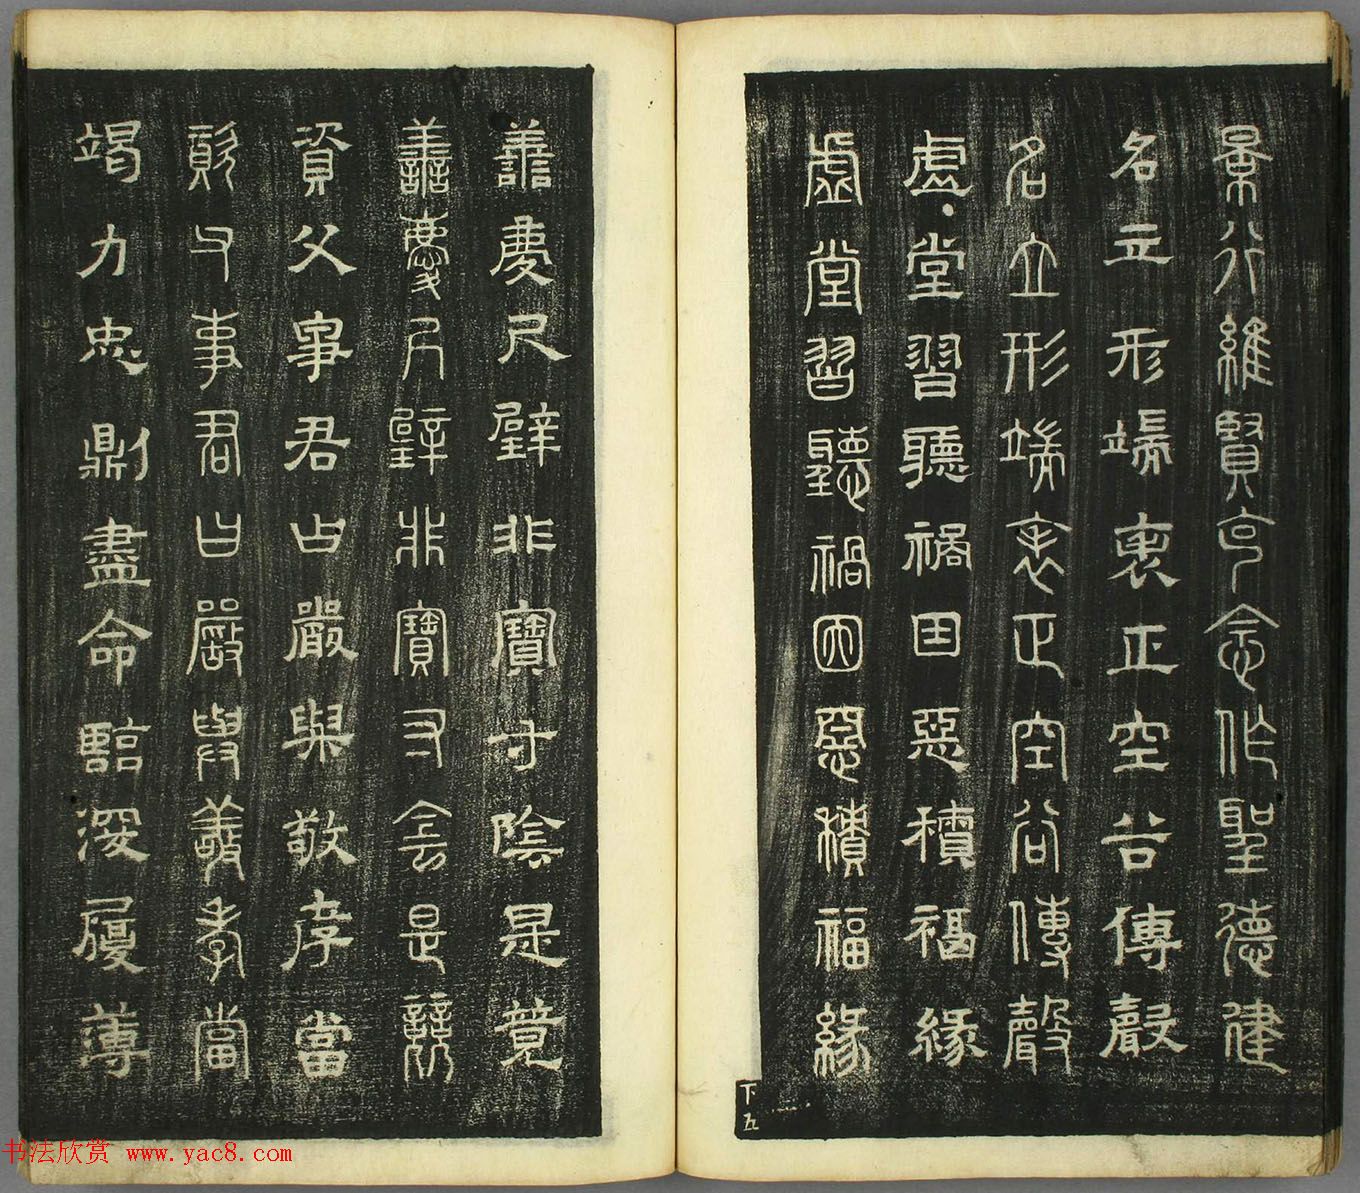 景行維賢克念作聖德建
名立形端表正空谷傳聲
名立形端表正空谷傳聲
虛堂習聽禍因惡積福緣
虛堂習聽禍因惡積福緣
下五
善慶尺璧非寶寸陰是競
善慶尺璧非寶寸陰是競
資父事君曰嚴與敬孝當
資父事君曰嚴與敬孝當
竭力忠則盡命臨深履薄
书法欣赏 www.yac8.com